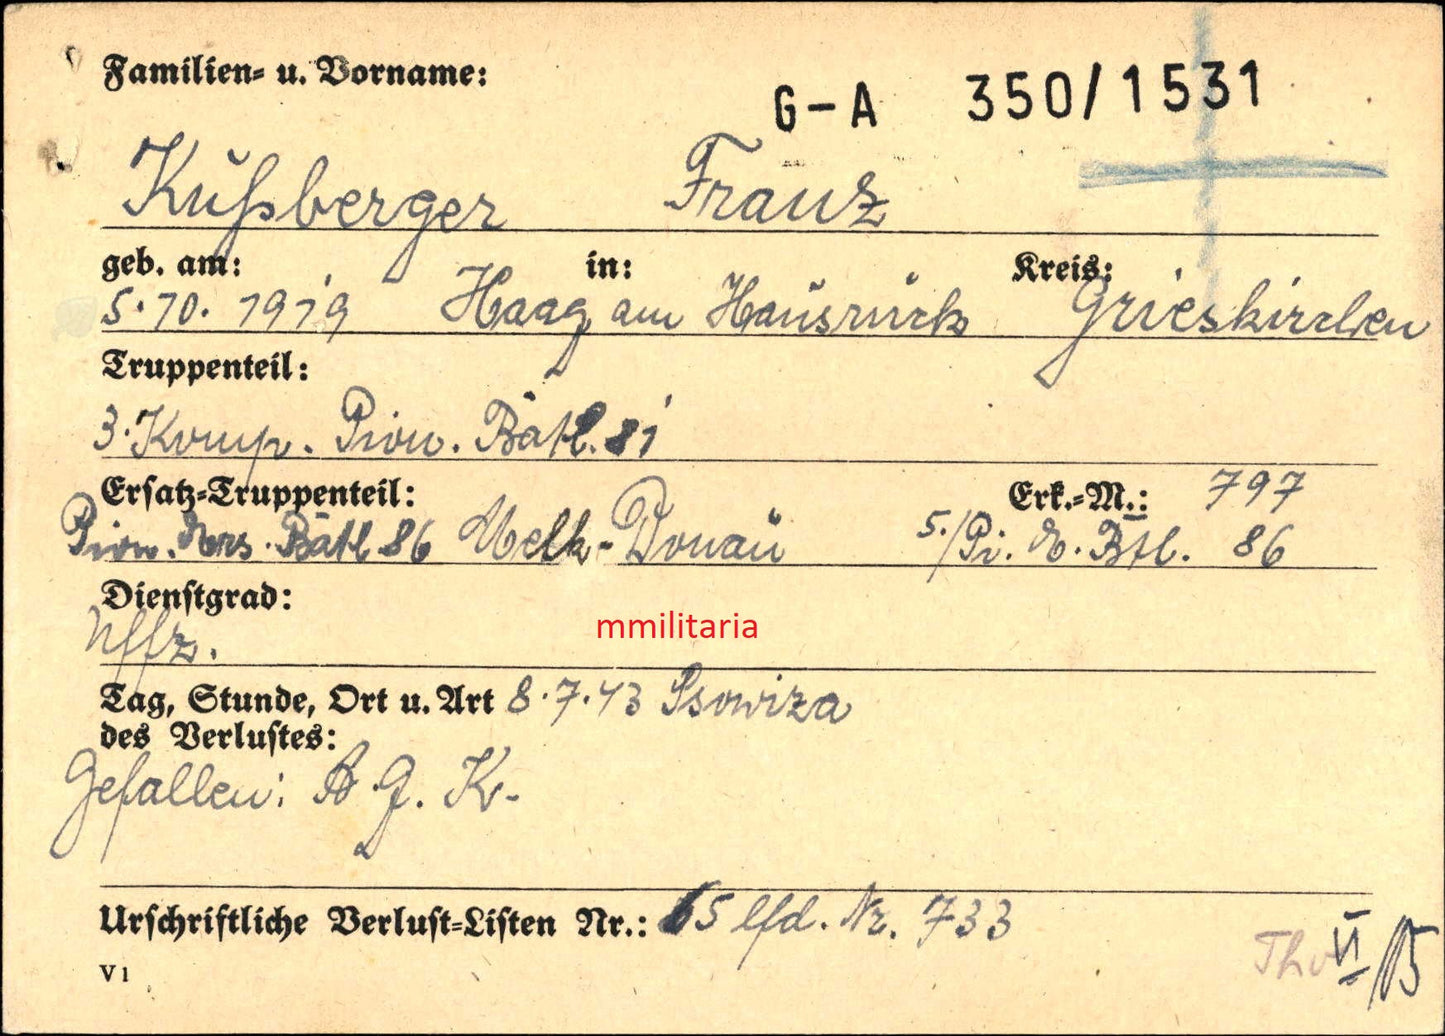 Familien- u. Vorname:
G-A 350/1531
Kußberger Franz
geb. am: in: Kreis:
5.10.1919 Haag am Hausruck Grieskirchen
Truppenteil:
3. Komp. Pion. Batl. 81
Ersatz-Truppenteil: Erk.-M.: 797
Pion. Ers. Batl. 86 Melk-Donau 5./Pi. E. Btl. 86
Dienstgrad:
Uffz.
mmilitaria
Tag, Stunde, Ort u. Art 8.7.43 Ssowiza
des Verlustes:
Gefallen: A. G. K.
Urschriftliche Verlust-Listen Nr.: 65 lfd. Nr. 733
V1